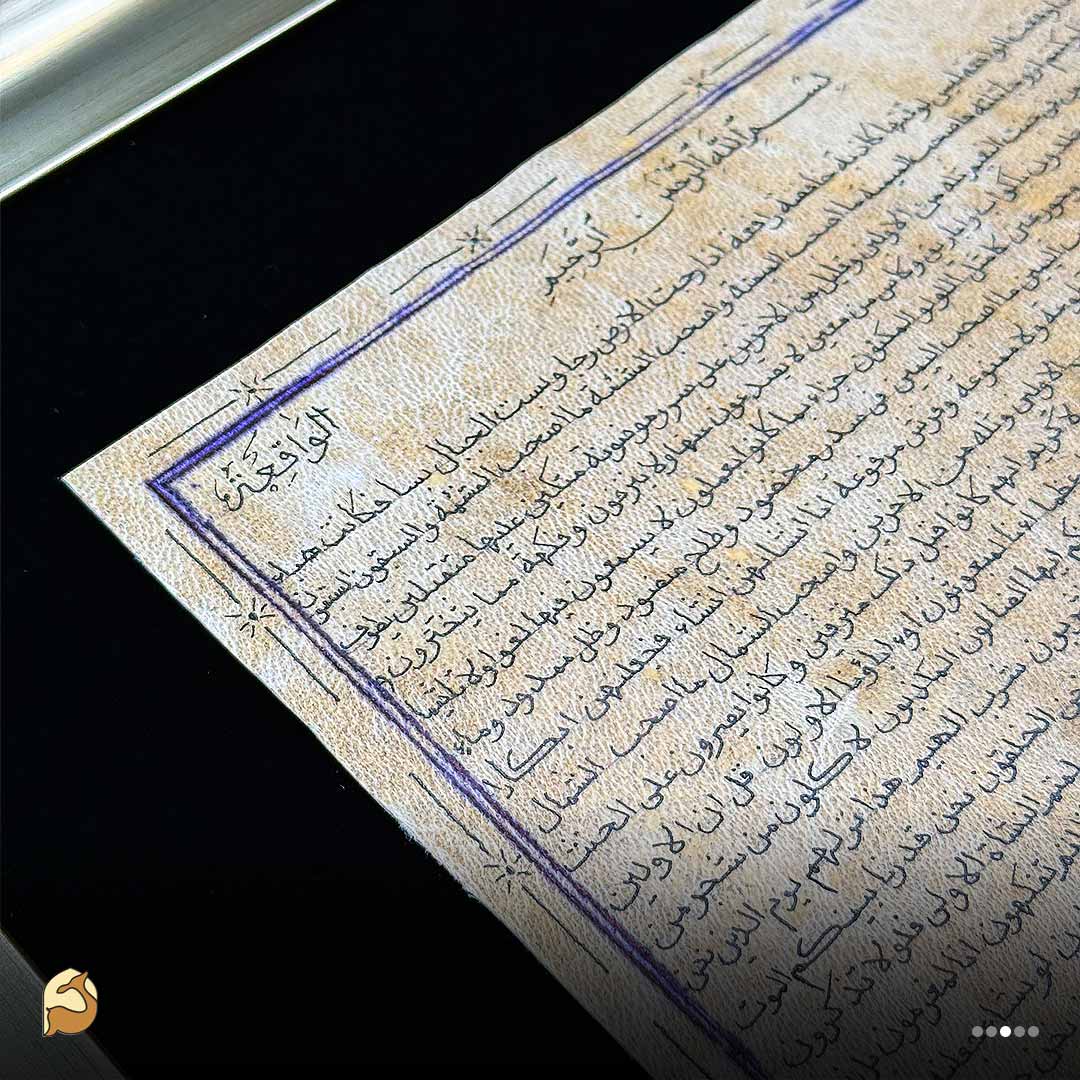 بِسْمِ اللَّهِ الرَّحْمَٰنِ الرَّحِيمِ
الْوَاقِعَة
وقعت الواقعة ليس لوقعتها كاذبة خافضة رافعة اذا رجت الارض رجا وبست الجبال بسا فكانت هباء
وكنتم ازوجا ثلثة فاصحب الميمنة ما اصحب الميمنة واصحب المشئمة ما اصحب المشئمة والسبقون السبقون
جنت النعيم ثلة من الاولين وقليل من الاخرين على سرر موضونة متكئين عليها متقبلين يطوف
مخلدون باكواب واباريق وكاس من معين لا يصدعون عنها ولا ينزفون وفكهة مما يتخيرون
وحور عين كامثل اللؤلؤ المكنون جزاء بما كانوا يعملون لا يسمعون فيها لغوا ولا تاثيما
اليمين ما اصحب اليمين في سدر مخضود وطلح منضود وظل ممدود وماء
ولا ممنوعة وفرش مرفوعة انا انشانهن انشاء فجعلنهن ابكارا
الاولين وثلة من الاخرين واصحب الشمال ما اصحب الشمال
لا كريم انهم كانوا قبل ذلك مترفين وكانوا يصرون على الحنث
وعظاما انا لمبعوثون او اباؤنا الاولون قل ان الاولين
ايها الضالون المكذبون لاكلون من شجر من
شرب الهيم هذا نزلهم يوم الدين نحن
الخلقون نحن قدرنا بينكم الموت
النشاة الاولى فلولا تذكرون
تفكهون انا لمغرمون بل
لو نشاء جعلنه